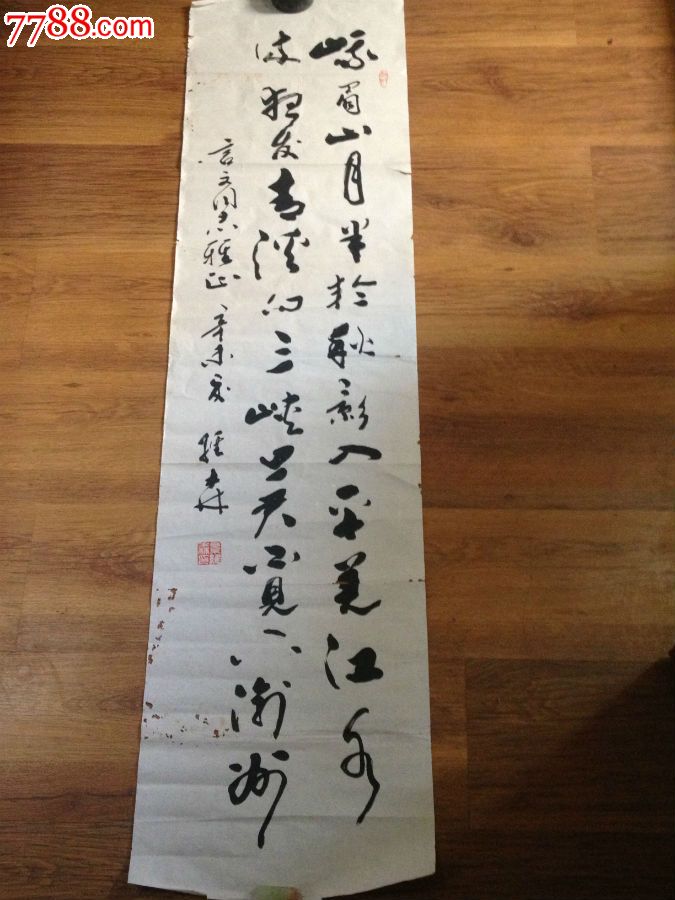 7788.com
峨眉山月半轮秋影入平羌江水
流夜发青溪向三峡思君不见下渝州
言文同志雅正 辛未夏 森